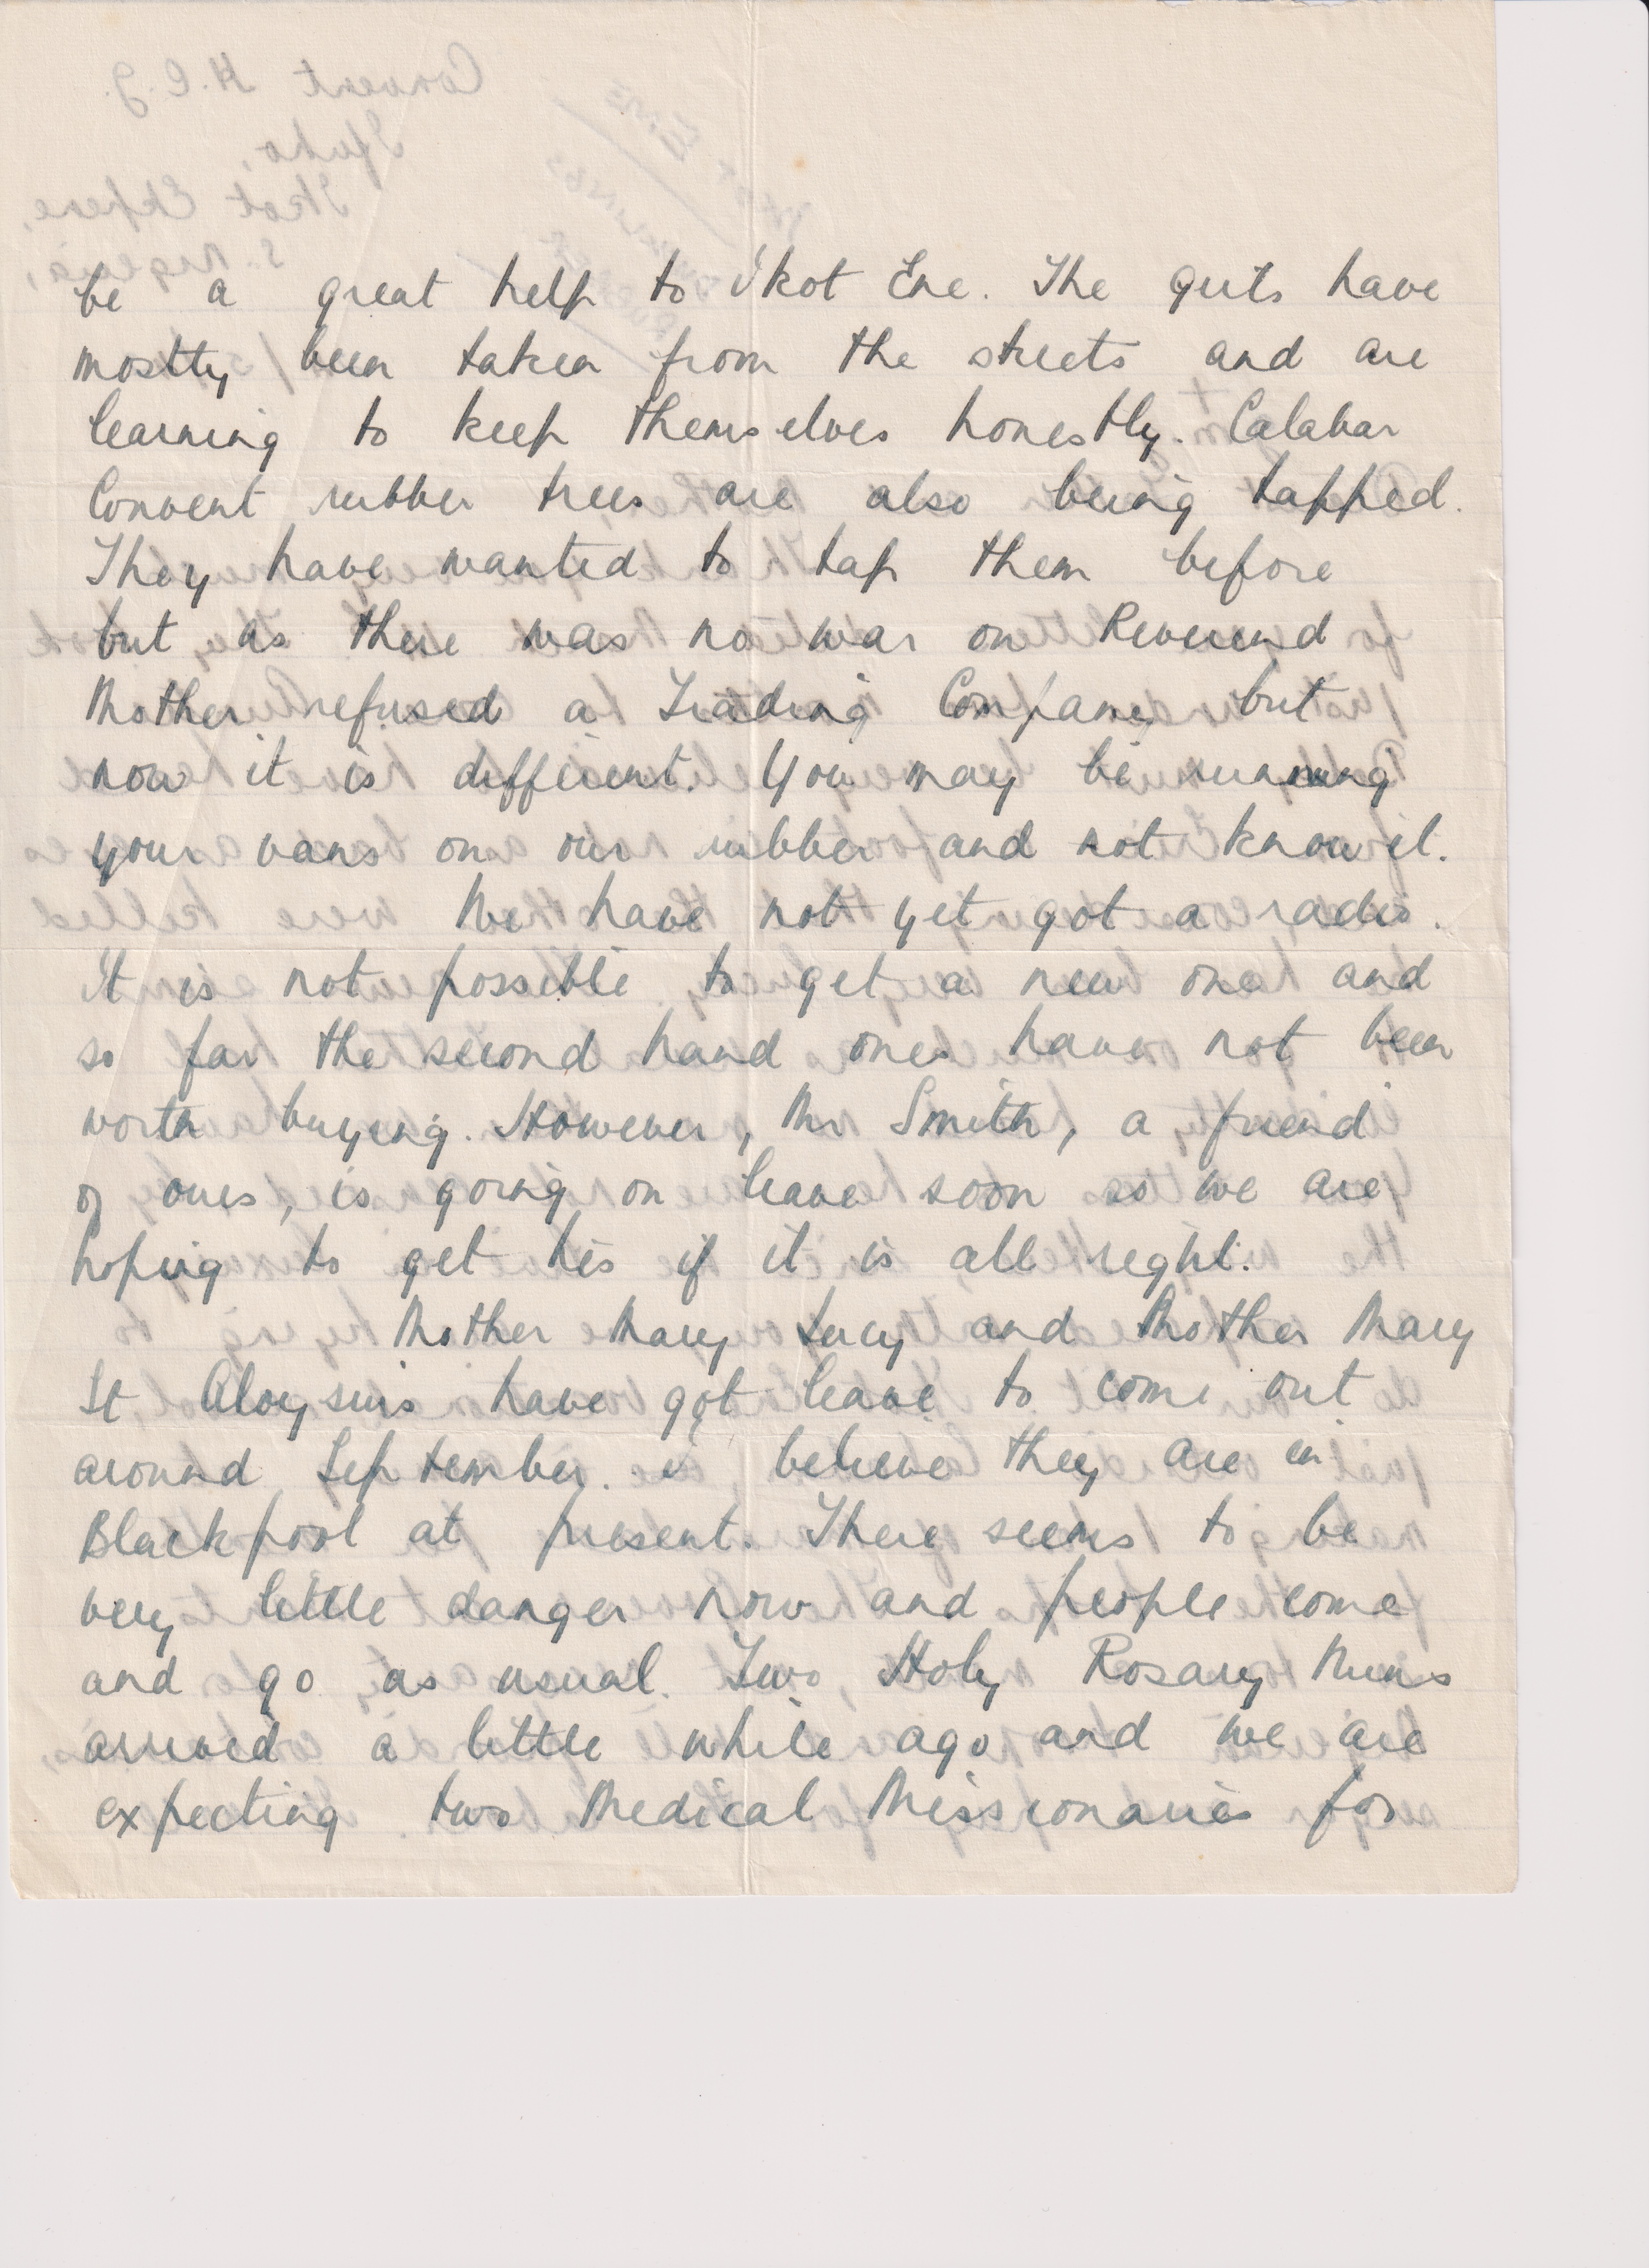 be a great help to Ikot Ene. The girls have
mostly been taken from the streets and are
learning to keep themselves honestly. Calabar
Convent rubber trees are also being tapped.
They have wanted to tap them before
but as there was no war on Reverend
Mother refused a Trading Company but
now it is different. You may be running
your vans on our rubber and not know it.
We have not yet got a radio.
It is not possible to get a new one and
so far the second hand ones have not been
worth buying. However, Mr Smith, a friend
of ours, is going on leave soon so we are
hoping to get his if it is all right.
Mother Mary Lucy and Mother Mary
St Aloysius have got leave to come out
around September. I believe they are in
Blackpool at present. There seems to be
very little danger now and people come
and go as usual. Two Holy Rosary Nuns
arrived a little while ago and we are
expecting two Medical Missionaries for